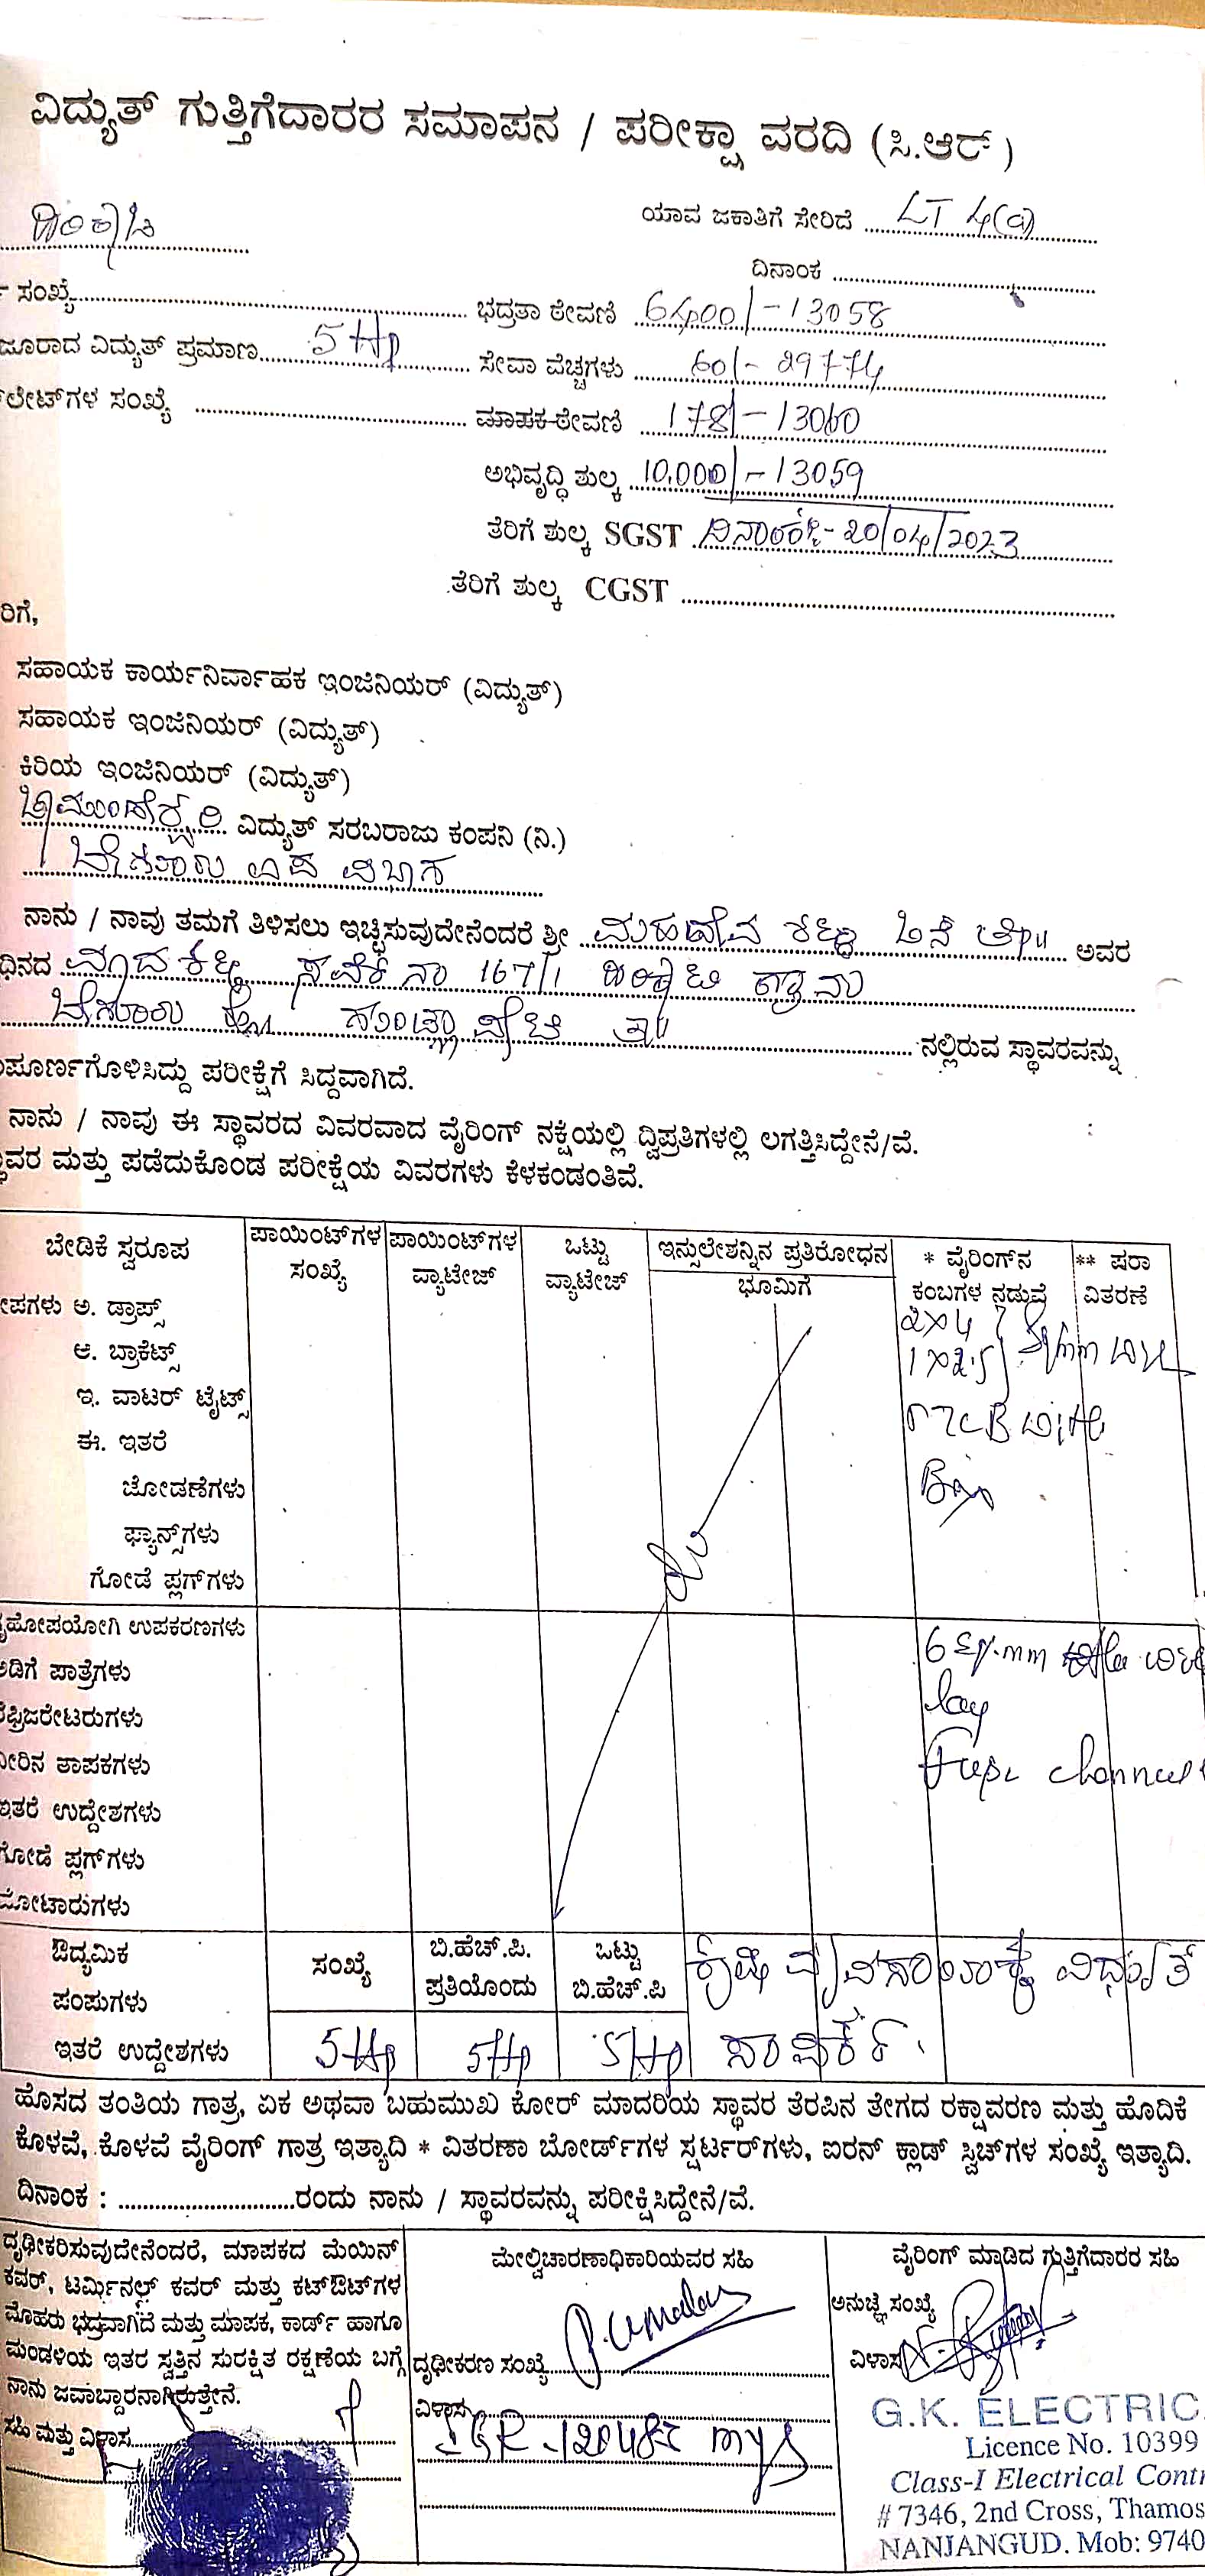 ವಿದ್ಯುತ್ ಗುತ್ತಿಗೆದಾರರ ಸಮಾಪನ / ಪರೀಕ್ಷಾ ವರದಿ (ಸಿ.ಆರ್)
ಯಾವ ಜಕಾತಿಗೆ ಸೇರಿದೆ LT 4(a)
ದಿನಾಂಕ
ಸಂಖ್ಯೆ ಭದ್ರತಾ ಠೇವಣಿ 6400/-13058
ಜೂರಾದ ವಿದ್ಯುತ್ ಪ್ರಮಾಣ 5 Hp ಸೇವಾ ವೆಚ್ಚಗಳು 60/- 29774
ಲೇಟ್‌ಗಳ ಸಂಖ್ಯೆ ಮಾಪಕ ಠೇವಣಿ 178/-13060
ಅಭಿವೃದ್ಧಿ ಶುಲ್ಕ 10,000/-13059
ತೆರಿಗೆ ಶುಲ್ಕ SGST ದಿನಾಂಕ:- 20/04/2023
ತೆರಿಗೆ ಶುಲ್ಕ CGST
ರಿಗೆ,
ಸಹಾಯಕ ಕಾರ್ಯನಿರ್ವಾಹಕ ಇಂಜಿನಿಯರ್ (ವಿದ್ಯುತ್)
ಸಹಾಯಕ ಇಂಜಿನಿಯರ್ (ವಿದ್ಯುತ್)
ಕಿರಿಯ ಇಂಜಿನಿಯರ್ (ವಿದ್ಯುತ್)
ಚಾಮುಂಡೇಶ್ವರಿ ವಿದ್ಯುತ್ ಸರಬರಾಜು ಕಂಪನಿ (ನಿ.)
ಬೇಗೂರು ಉಪ ವಿಭಾಗ
ನಾನು / ನಾವು ತಮಗೆ ತಿಳಿಸಲು ಇಚ್ಛಿಸುವುದೇನೆಂದರೆ ಶ್ರೀ ಮಹದೇವ ಶೆಟ್ಟಿ ಅವರ
ಧಿನದ ಸರ್ವೆ ನಂ 167/1 ಗ್ರಾಮ
ಬೇಗೂರು ಹೋ ಗುಂಡ್ಲುಪೇಟೆ ತಾ|| ನಲ್ಲಿರುವ ಸ್ಥಾವರವನ್ನು
ಪೂರ್ಣಗೊಳಿಸಿದ್ದು ಪರೀಕ್ಷೆಗೆ ಸಿದ್ಧವಾಗಿದೆ.
ನಾನು / ನಾವು ಈ ಸ್ಥಾವರದ ವಿವರವಾದ ವೈರಿಂಗ್ ನಕ್ಷೆಯಲ್ಲಿ ದ್ವಿಪ್ರತಿಗಳಲ್ಲಿ ಲಗತ್ತಿಸಿದ್ದೇನೆ/ವೆ.
ವರ ಮತ್ತು ಪಡೆದುಕೊಂಡ ಪರೀಕ್ಷೆಯ ವಿವರಗಳು ಕೆಳಕಂಡಂತಿವೆ.
ಬೇಡಿಕೆ ಸ್ವರೂಪ ಪಾಯಿಂಟ್‌ಗಳ ಸಂಖ್ಯೆ ಪಾಯಿಂಟ್‌ಗಳ ವ್ಯಾಟೇಜ್ ಒಟ್ಟು ವ್ಯಾಟೇಜ್ ಇನ್ಸುಲೇಶನ್ನಿನ ಪ್ರತಿರೋಧನ ಭೂಮಿಗೆ * ವೈರಿಂಗ್‌ನ ಕಂಬಗಳ ನಡುವೆ ** ಷರಾ ವಿತರಣೆ
ಪಗಳು ಅ. ಡ್ರಾಪ್ಸ್ 2x4
ಆ. ಬ್ರಾಕೆಟ್ಸ್ 1x2.5 Sq mm
ಇ. ವಾಟರ್ ಟೈಟ್ಸ್
ಈ. ಇತರೆ MCB with
ಜೋಡಣೆಗಳು Box
ಫ್ಯಾನ್ಸ್‌ಗಳು
ಗೋಡೆ ಪ್ಲಗ್‌ಗಳು
ಹೋಪಯೋಗಿ ಉಪಕರಣಗಳು 6 sq.mm
ಅಡಿಗೆ ಪಾತ್ರೆಗಳು
ರೆಫ್ರಿಜರೇಟರುಗಳು
ನೀರಿನ ತಾಪಕಗಳು channel
ಇತರೆ ಉದ್ದೇಶಗಳು
ಗೋಡೆ ಪ್ಲಗ್‌ಗಳು
ಮೋಟಾರುಗಳು
ಔದ್ಯಮಿಕ ಸಂಖ್ಯೆ ಬಿ.ಹೆಚ್.ಪಿ. ಪ್ರತಿಯೊಂದು ಒಟ್ಟು ಬಿ.ಹೆಚ್.ಪಿ
ಪಂಪುಗಳು ಕೃಷಿ ವ್ಯವಸಾಯಕ್ಕೆ ವಿಧ್ಯುತ್
ಇತರೆ ಉದ್ದೇಶಗಳು 5 Hp 5 Hp 5 Hp
ಹೊಸದ ತಂತಿಯ ಗಾತ್ರ, ಏಕ ಅಥವಾ ಬಹುಮುಖ ಕೋರ್ ಮಾದರಿಯ ಸ್ಥಾವರ ತೆರಪಿನ ತೇಗದ ರಕ್ಷಾವರಣ ಮತ್ತು ಹೊದಿಕೆ
ಕೊಳವೆ, ಕೊಳವೆ ವೈರಿಂಗ್ ಗಾತ್ರ ಇತ್ಯಾದಿ * ವಿತರಣಾ ಬೋರ್ಡ್‌ಗಳ ಸ್ಪರ್ಟರ್‌ಗಳು, ಐರನ್ ಕ್ಲಾಡ್ ಸ್ವಿಚ್‌ಗಳ ಸಂಖ್ಯೆ ಇತ್ಯಾದಿ.
ದಿನಾಂಕ : ರಂದು ನಾನು / ಸ್ಥಾವರವನ್ನು ಪರೀಕ್ಷಿಸಿದ್ದೇನೆ/ವೆ.
ದೃಢೀಕರಿಸುವುದೇನೆಂದರೆ, ಮಾಪಕದ ಮೆಯಿನ್
ಕವರ್, ಟರ್ಮಿನಲ್ಸ್ ಕವರ್ ಮತ್ತು ಕಟ್‌ಔಟ್‌ಗಳ
ಮೊಹರು ಭದ್ರವಾಗಿದೆ ಮತ್ತು ಮಾಪಕ, ಕಾರ್ಡ್ ಹಾಗೂ
ಮಂಡಳಿಯ ಇತರ ಸ್ವತ್ತಿನ ಸುರಕ್ಷಿತ ರಕ್ಷಣೆಯ ಬಗ್ಗೆ
ನಾನು ಜವಾಬ್ದಾರನಾಗಿರುತ್ತೇನೆ.
ಸಹಿ ಮತ್ತು ವಿಳಾಸ
ಮೇಲ್ವಿಚಾರಣಾಧಿಕಾರಿಯವರ ಸಹಿ
ದೃಢೀಕರಣ ಸಂಖ್ಯೆ
ವಿಳಾಸ
ವೈರಿಂಗ್ ಮಾಡಿದ ಗುತ್ತಿಗೆದಾರರ ಸಹಿ
ಅನುಜ್ಞೆ ಸಂಖ್ಯೆ
ವಿಳಾಸ
G.K. ELECTRIC
Licence No. 10399
Class-I Electrical Contr
# 7346, 2nd Cross, Thamos
NANJANGUD. Mob: 9740